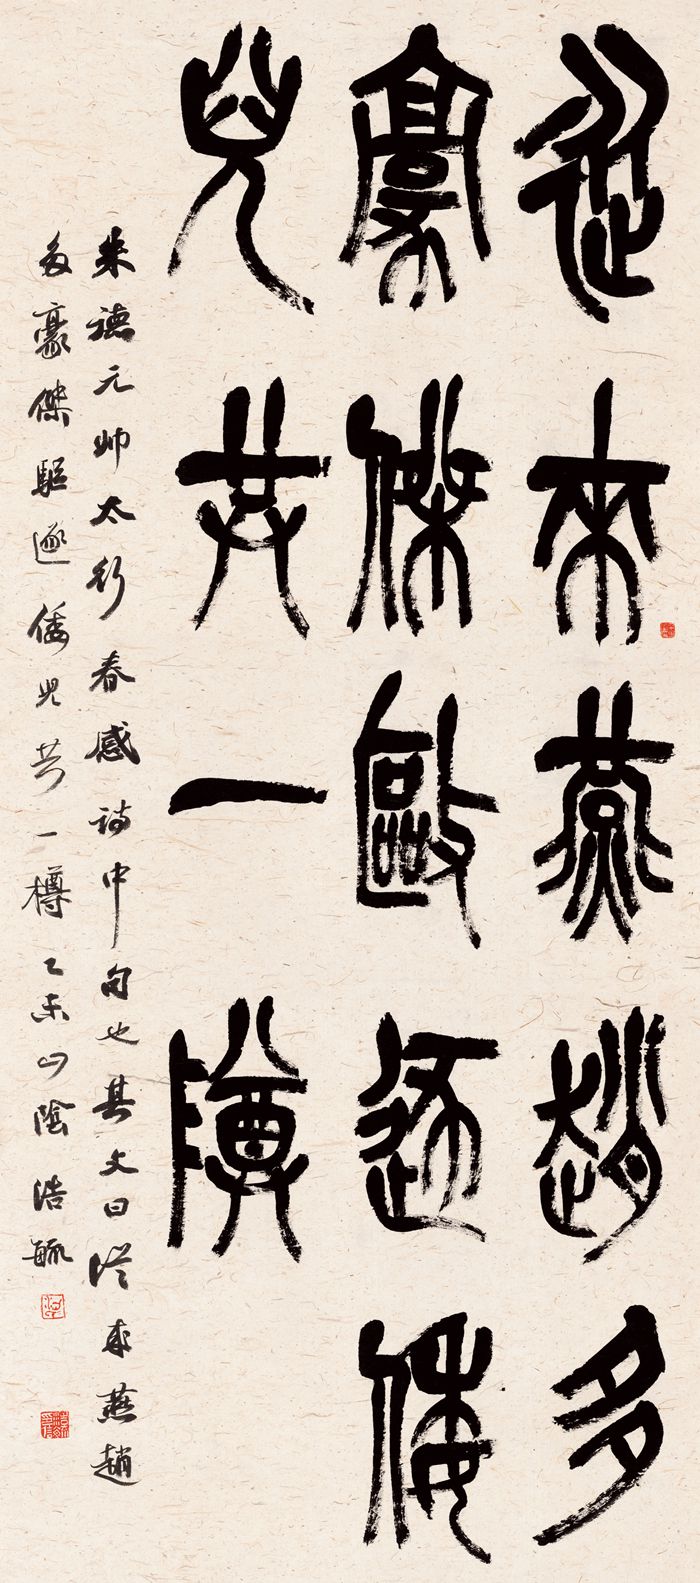 從來燕趙多
豪傑毆逐倭
兒共一罇
朱德元帥太行春感詩中句也其文曰從來燕趙
多豪傑驅逐倭兒共一樽乙未山陰浩毓